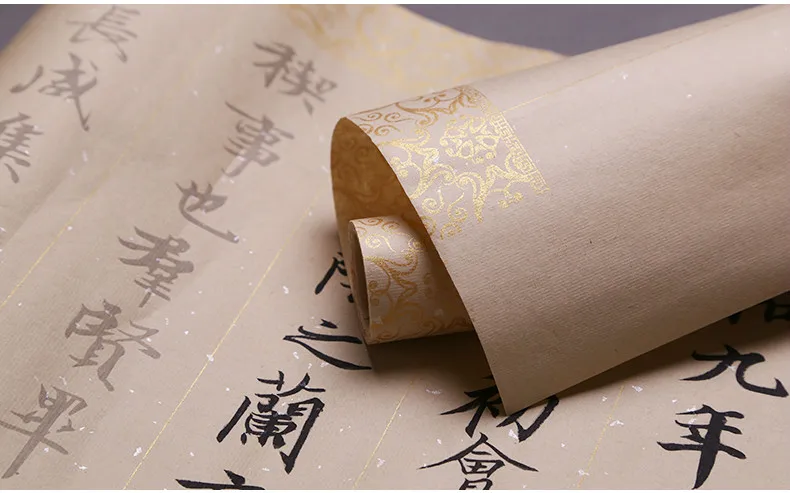 九年
初會
之蘭
稧事也羣賢畢
長咸集